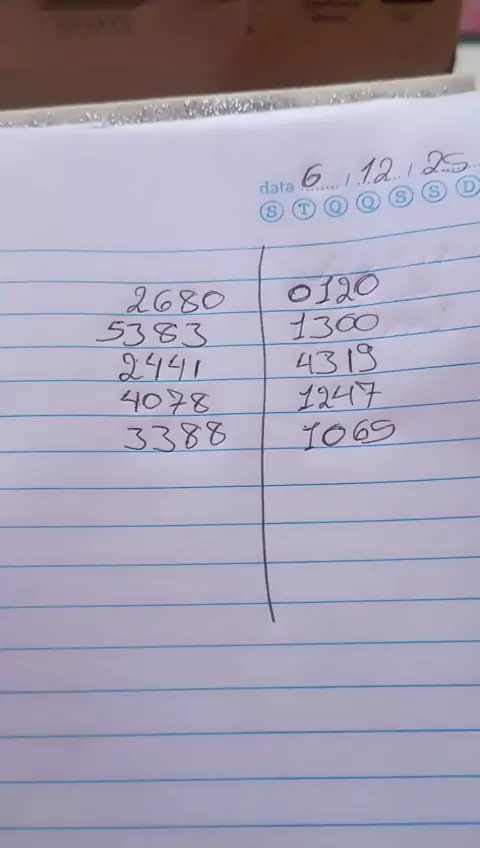 data 6 / 12 / 25
S T Q Q S S D
2680 0120
5383 1300
2441 4319
4078 1247
3388 1065